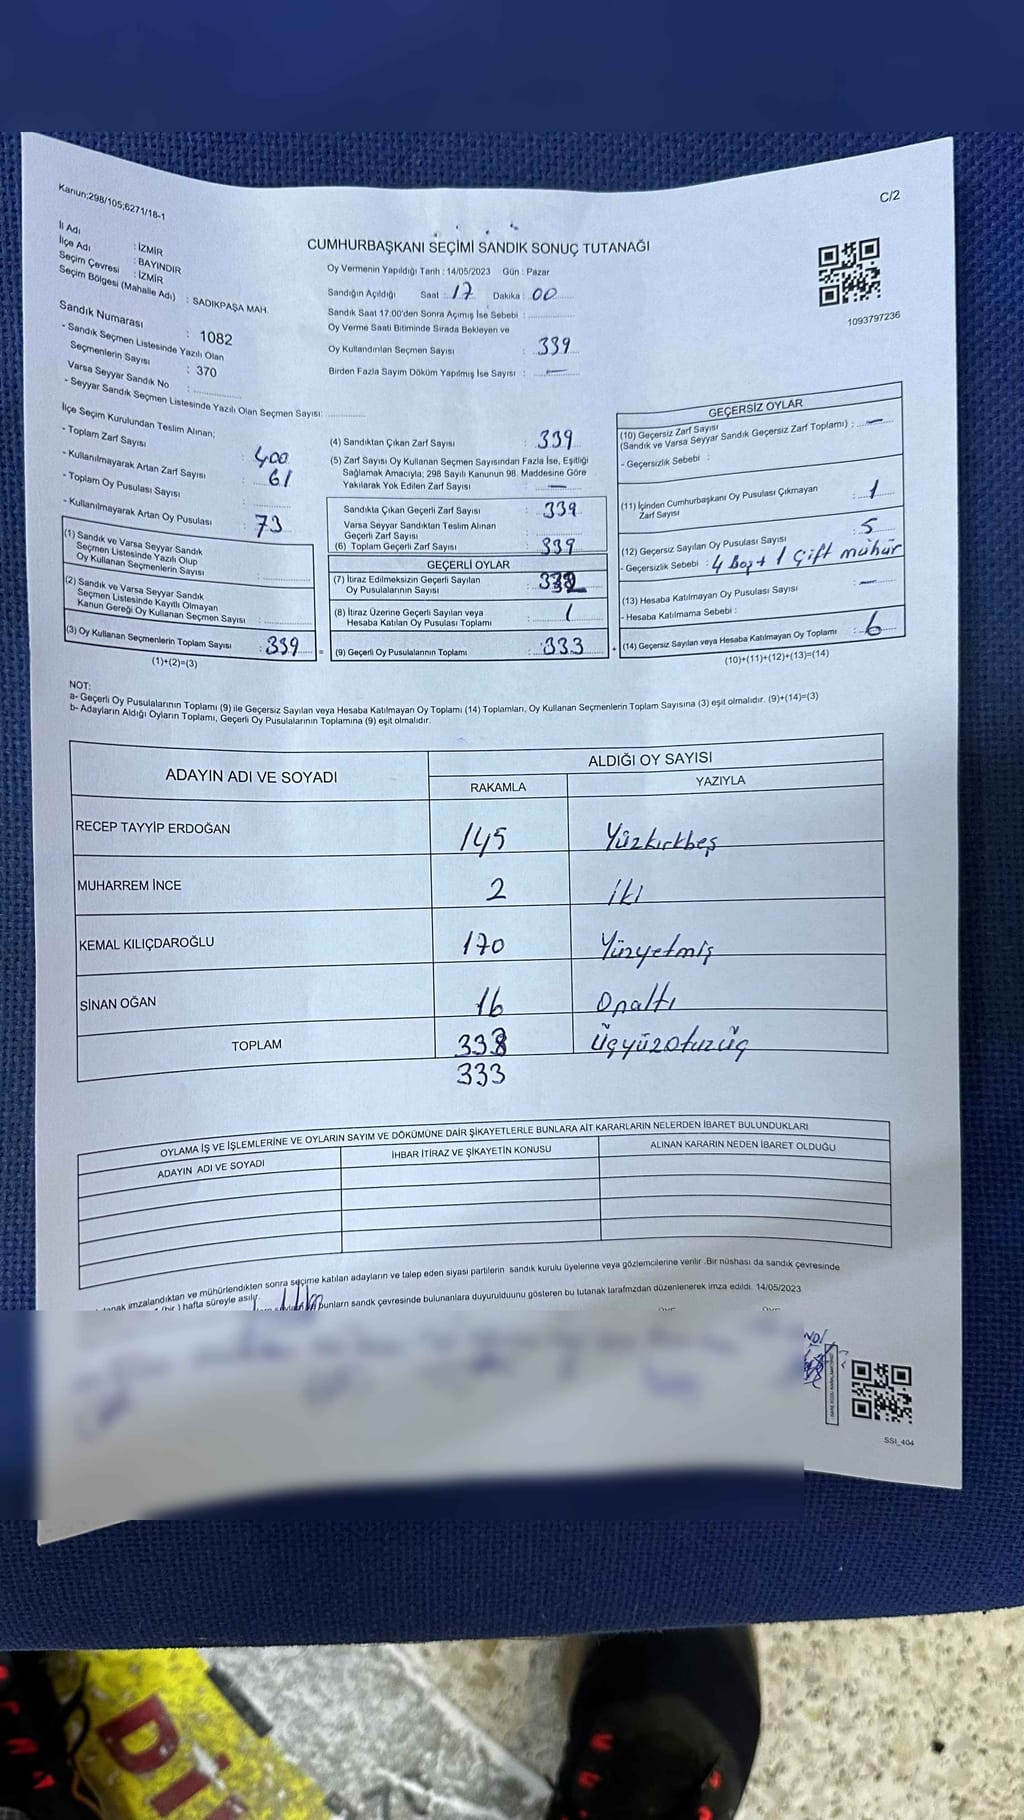 Kanun;298/105;6271/18-1
C/2
İl Adı : İZMİR
İlçe Adı : BAYINDIR
Seçim Çevresi : İZMİR
Seçim Bölgesi (Mahalle Adı) : SADIKPAŞA MAH.
CUMHURBAŞKANI SEÇİMİ SANDIK SONUÇ TUTANAĞI
Oy Vermenin Yapıldığı Tarih : 14/05/2023 Gün : Pazar
Sandığın Açıldığı Saat : 17 Dakika : 00
Sandık Saat 17:00'den Sonra Açımış İse Sebebi :
Oy Verme Saati Bitiminde Sırada Bekleyen ve
Oy Kullandırılan Seçmen Sayısı : 339
Birden Fazla Sayım Döküm Yapılmış İse Sayısı : —
1093797236
Sandık Numarası : 1082
- Sandık Seçmen Listesinde Yazılı Olan
Seçmenlerin Sayısı : 370
Varsa Seyyar Sandık No :
- Seyyar Sandık Seçmen Listesinde Yazılı Olan Seçmen Sayısı:
İlçe Seçim Kurulundan Teslim Alınan;
- Toplam Zarf Sayısı : 400
- Kullanılmayarak Artan Zarf Sayısı : 61
- Toplam Oy Pusulası Sayısı :
- Kullanılmayarak Artan Oy Pusulası : 73
(1) Sandık ve Varsa Seyyar Sandık
Seçmen Listesinde Yazılı Olup
Oy Kullanan Seçmenlerin Sayısı :
(2) Sandık ve Varsa Seyyar Sandık
Seçmen Listesinde Kayıtlı Olmayan
Kanun Gereği Oy Kullanan Seçmen Sayısı :
(3) Oy Kullanan Seçmenlerin Toplam Sayısı : 339
(1)+(2)=(3)
(4) Sandıktan Çıkan Zarf Sayısı : 339
(5) Zarf Sayısı Oy Kullanan Seçmen Sayısından Fazla İse, Eşitliği
Sağlamak Amacıyla; 298 Sayılı Kanunun 98. Maddesine Göre
Yakılarak Yok Edilen Zarf Sayısı : —
Sandıkta Çıkan Geçerli Zarf Sayısı : 339
Varsa Seyyar Sandıktan Teslim Alınan
Geçerli Zarf Sayısı :
(6) Toplam Geçerli Zarf Sayısı : 339
GEÇERLİ OYLAR
(7) İtiraz Edilmeksizin Geçerli Sayılan
Oy Pusulalarının Sayısı : 332
(8) İtiraz Üzerine Geçerli Sayılan veya
Hesaba Katılan Oy Pusulası Toplamı : 1
= (9) Geçerli Oy Pusulalarının Toplamı : 333
GEÇERSİZ OYLAR
(10) Geçersiz Zarf Sayısı
(Sandık ve Varsa Seyyar Sandık Geçersiz Zarf Toplamı) : —
- Geçersizlik Sebebi :
(11) İçinden Cumhurbaşkanı Oy Pusulası Çıkmayan
Zarf Sayısı : 1
(12) Geçersiz Sayılan Oy Pusulası Sayısı : 5
- Geçersizlik Sebebi : 4 Boş + 1 Çift mühür
(13) Hesaba Katılmayan Oy Pusulası Sayısı : —
- Hesaba Katılmama Sebebi :
+ (14) Geçersiz Sayılan veya Hesaba Katılmayan Oy Toplamı : 6
(10)+(11)+(12)+(13)=(14)
NOT:
a- Geçerli Oy Pusulalarının Toplamı (9) ile Geçersiz Sayılan veya Hesaba Katılmayan Oy Toplamı (14) Toplamları, Oy Kullanan Seçmenlerin Toplam Sayısına (3) eşit olmalıdır. (9)+(14)=(3)
b- Adayların Aldığı Oyların Toplamı, Geçerli Oy Pusulalarının Toplamına (9) eşit olmalıdır.
ADAYIN ADI VE SOYADI
ALDIĞI OY SAYISI
RAKAMLA YAZIYLA
RECEP TAYYİP ERDOĞAN 145 Yüzkırkbeş
MUHARREM İNCE 2 iki
KEMAL KILIÇDAROĞLU 170 Yüzyetmiş
SİNAN OĞAN 16 Onaltı
TOPLAM 333 Üçyüzotuzüç
333
OYLAMA İŞ VE İŞLEMLERİNE VE OYLARIN SAYIM VE DÖKÜMÜNE DAİR ŞİKAYETLERLE BUNLARA AİT KARARLARIN NELERDEN İBARET BULUNDUKLARI
ADAYIN ADI VE SOYADI İHBAR İTİRAZ VE ŞİKAYETİN KONUSU ALINAN KARARIN NEDEN İBARET OLDUĞU
imzalandıktan ve mühürlendikten sonra seçime katılan adayların ve talep eden siyasi partilerin sandık kurulu üyelerine veya gözlemcilerine verilir .Bir nüshası da sandık çevresinde
hafta süreyle asılır.
bunların sandk çevresinde bulunanlara duyurulduunu gösteren bu tutanak tarafmzdan düzenlenerek imza edildi. 14/05/2023
SSI_404